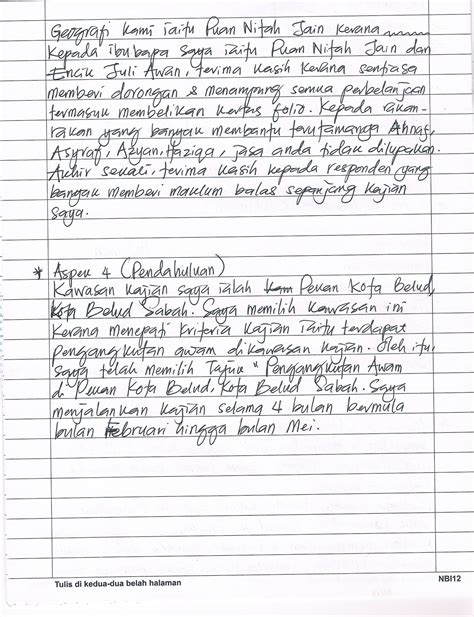 Geografi kami iaitu Puan Nitah Jain kerana
Kepada ibubapa saya iaitu Puan Nitah Jain dan
Encik Juli Awan, terima kasih kerana sentiasa
memberi dorongan & menampung semua perbelanjaan
termasuk membelikan kertas folio. Kepada rakan-
rakan yang banyak membantu terutamanya Ahnaf,
Asyraf, Azyan, Haziqa, jasa anda tidak dilupakan.
Akhir sekali, terima kasih kepada responden yang
banyak memberi maklum balas sepanjang kajian
saya.
* Aspek 4 (Pendahuluan)
Kawasan kajian saya ialah Pekan Kota Belud,
Kota Belud Sabah. Saya memilih kawasan ini
kerana menepati kriteria kajian iaitu terdapat
pengangkutan awam dikawasan kajian. Oleh itu,
saya telah memilih Tajuk " Pengangkutan Awam
di Pekan Kota Belud, Kota Belud Sabah. Saya
menjalankan kajian selama 4 bulan bermula
bulan Februari hingga bulan Mei.
Tulis di kedua-dua belah halaman
NBI12